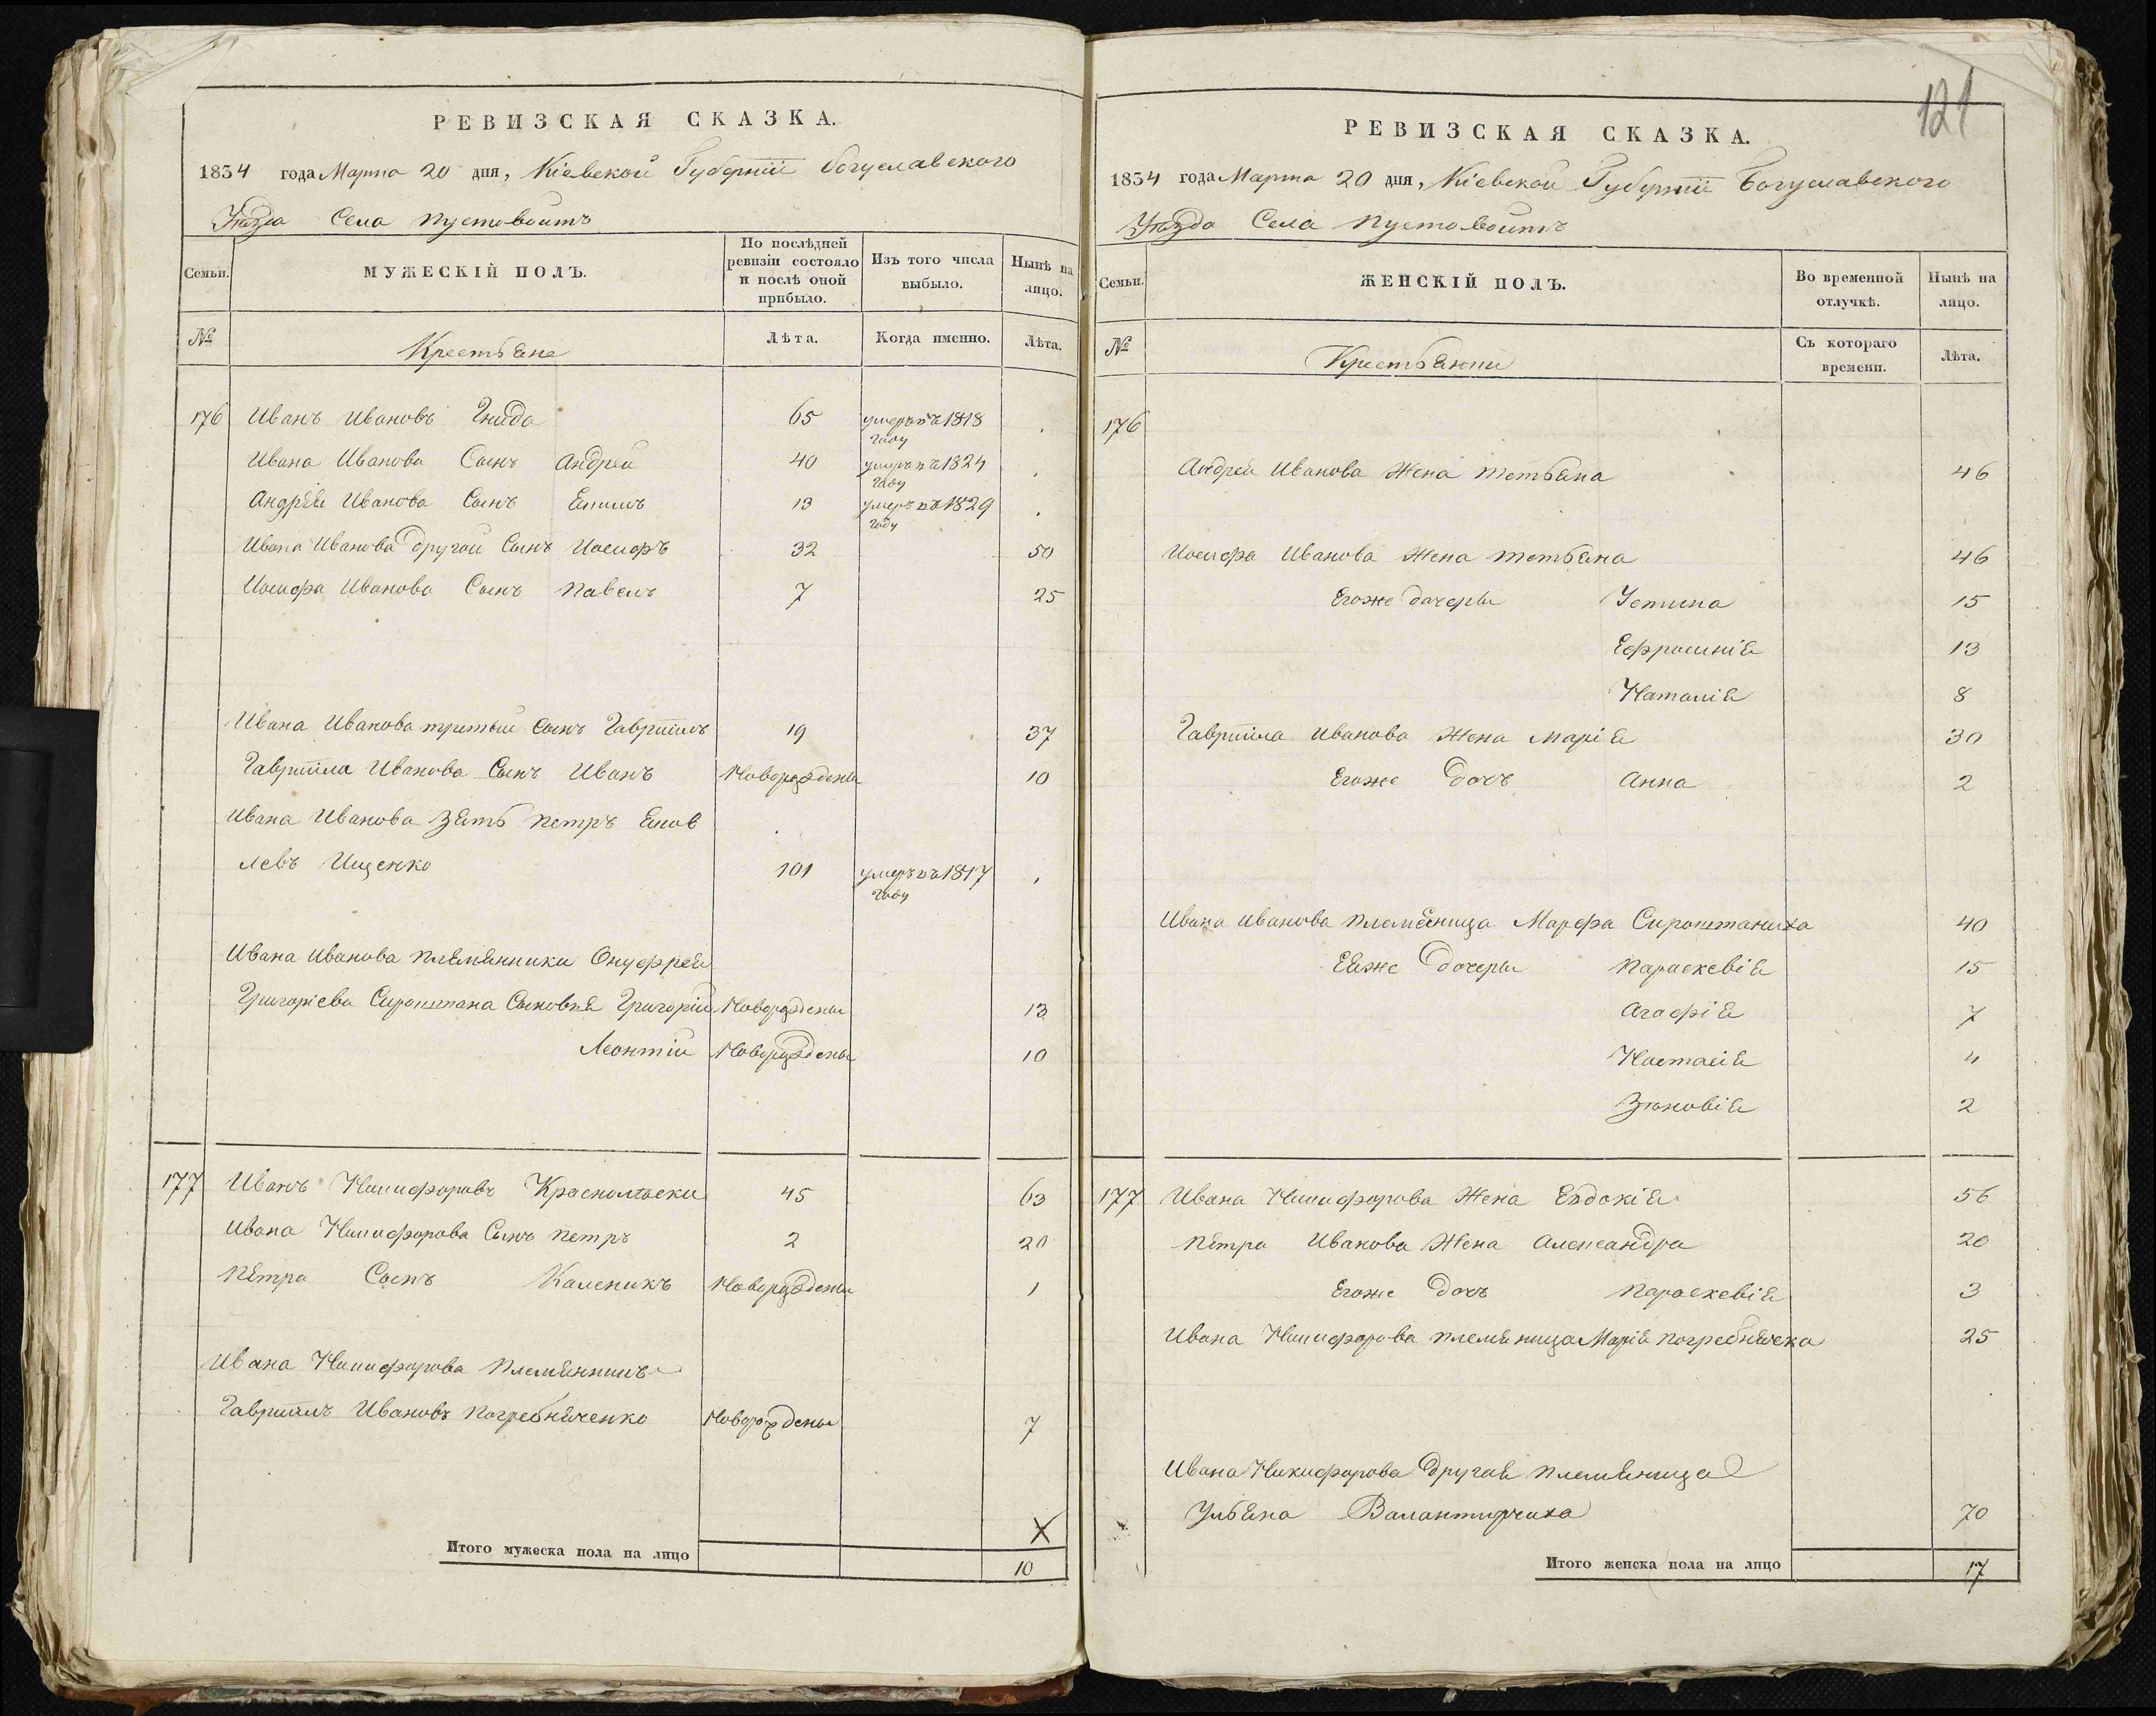 РЕВИЗСКАЯ СКАЗКА.
1834 года Марта 20 дня, Кіевской Губерніи богуславского
Уѣзда Села пустовоитъ
Семьи.
МУЖЕСКІЙ ПОЛЪ.
По послѣдней ревизіи состояло и послѣ оной прибыло.
Изъ того числа выбыло.
Нынѣ на лицо.
№
Крестьяне
Лѣта.
Когда именно.
Лѣта.
176 Иванъ Ивановъ Гнида 65 умеръ въ 1818 году
Ивана Иванова Сынъ Андреи 40 умеръ въ 1824 году
Андрея Иванова Сынъ 13 умеръ въ 1829 году
Ивана Иванова другои Сынъ Иосифъ 32 50
Иосифа Иванова Сынъ Павелъ 7 25
Ивана Иванова третьи сынъ Гавріилъ 19 37
Гавріила Иванова Сынъ Иванъ Новорожденъ 10
Ивана Иванова зять петръ
левъ Ищенко 101 умеръ въ 1817 году
Ивана Иванова племянники Онуфрея
Григоріева Сироштана Сыновья Григоріи Новорожденъ 13
Леонтіи Новорожденъ 10
177 Иванъ Никифоровъ 45 63
Ивана Никифорова Сынъ петръ 2 20
Петра Сынъ Каленикъ Новорожденъ 1
Ивана Никифорова племянникъ
Гавріилъ Ивановъ погребняченко Новорожденъ 7
Х
Итого мужеска пола на лицо 10
121
РЕВИЗСКАЯ СКАЗКА.
1834 года Марта 20 дня, Кіевской Губерніи Богуславского
Уѣзда Села пустовоитъ
Семьи.
ЖЕНСКІЙ ПОЛЪ.
Во временной отлучкѣ.
Нынѣ на лицо.
№
Крестьянки
Съ котораго времени.
Лѣта.
176
Андрея Иванова Жена тетьяна 46
Иосифа Иванова Жена тетьяна 46
Егоже дочеры Устина 15
Ефросинія 13
Наталія 8
Гавріила Иванова Жена марія 30
Егоже дочъ Анна 2
Ивана Иванова племяница Марфа Сироштаниха 40
Еяже дочеры параскевія 15
Агафія 7
Настасія 4
Зѣновія 2
177 Ивана Никифорова Жена Евдокія 56
Петра Иванова Жена Александра 20
Егоже дочъ параскевія 3
Ивана Никифорова племяница Марія погребнячка 25
Ивана Никифорова другая племяница
Ульяна 70
Итого женска пола на лицо 17